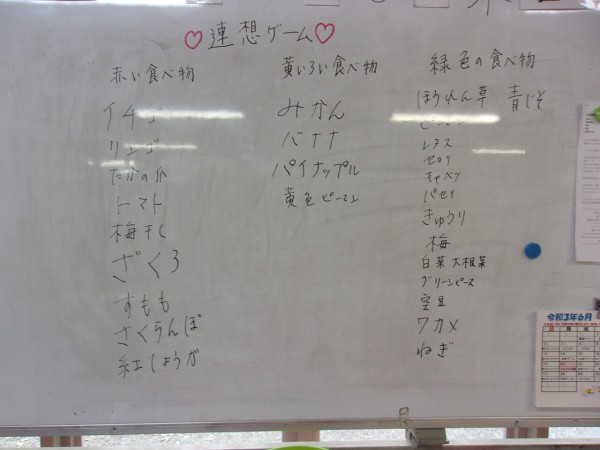 連想ゲーム
赤い食べ物
イチゴ
リンゴ
たかの爪
トマト
梅干し
ざくろ
すもも
さくらんぼ
紅しょうが
黄いろい食べ物
みかん
バナナ
パイナップル
黄色ピーマン
緑色の食べ物
ほうれん草 青じそ
レタス
セロリ
キャベツ
パセリ
きゅうり
梅
白菜 大根葉
グリーンピース
空豆
ワカメ
ねぎ
令和3年6月